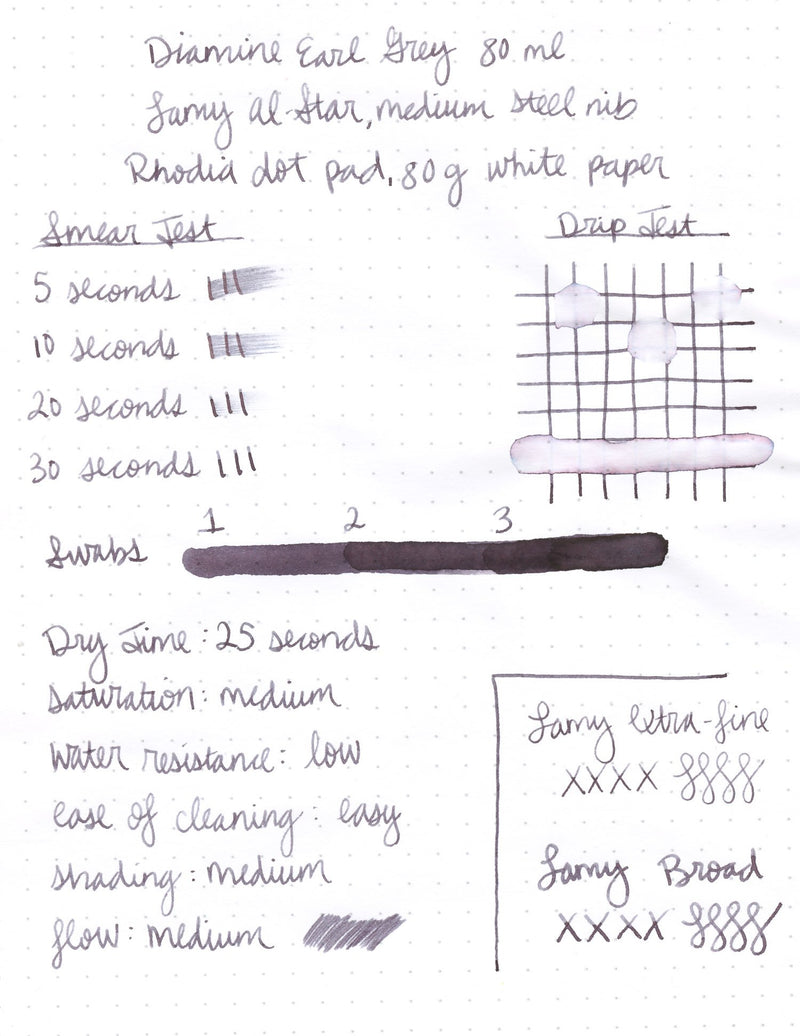 Diamine Earl Grey 80 ml
Lamy Al-Star, medium steel nib
Rhodia dot pad, 80g white paper
Smear Test
5 seconds
10 seconds
20 seconds
30 seconds
Drip Test
1 2 3
Swabs
Dry Time: 25 seconds
saturation: medium
water resistance: low
ease of cleaning: easy
shading: medium
flow: medium
Lamy extra-fine
xxxx
Lamy Broad
xxxx